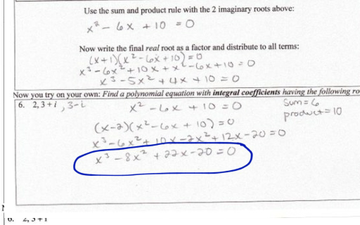 Use the sum and product rule with the 2 imaginary roots above:
x² - 6x + 10 = 0
Now write the final real root as a factor and distribute to all terms:
(x+1)(x² - 6x + 10) = 0
x³ - 6x² + 10x + x² - 6x + 10 = 0
x³ - 5x² + 4x + 10 = 0
Now you try on your own: Find a polynomial equation with integral coefficients having the following ro
6. 2, 3+i, 3-i x² - 6x + 10 = 0 Sum = 6
product = 10
(x-2)(x² - 6x + 10) = 0
x³ - 6x² + 10x - 2x² + 12x - 20 = 0
x³ - 8x² + 22x - 20 = 0